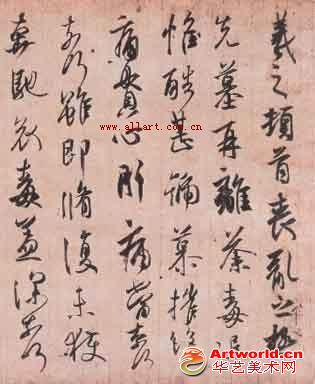 羲之頓首喪亂之極
先墓再離荼毒追
惟酷甚號慕摧絕
痛貫心肝痛當奈何
奈何雖即脩復未獲
奔馳哀毒益深奈何
www.allart.com.cn
Artworld.cn
华艺美术网